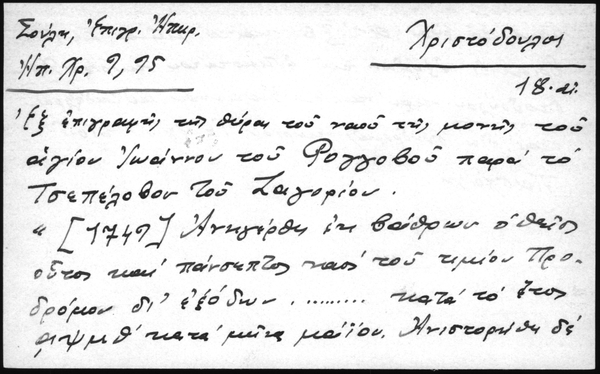 Σούλη, Ἐπιγρ. Ἠπειρ.
Χριστόδουλος
Ἠπ. Χρ. 9, 95
18. αἰ.
Ἐξ ἐπιγραφῆς τῆς θύρας τοῦ ναοῦ τῆς μονῆς τοῦ
ἁγίου Ἰωάννου τοῦ Ρογγοβοῦ παρὰ τὸ
Τσεπέλοβον τοῦ Ζαγορίου.
"[1749] Ἀνηγέρθη ἐκ βάθρων ὁ θεῖος
οὗτος καὶ πάνσεπτος ναὸς τοῦ τιμίου Προ-
δρόμου δι' ἐξόδων ......... κατὰ τὸ ἔτος
αψμθ' κατὰ μῆνα μάϊον. Ἀνιστορήθη δὲ